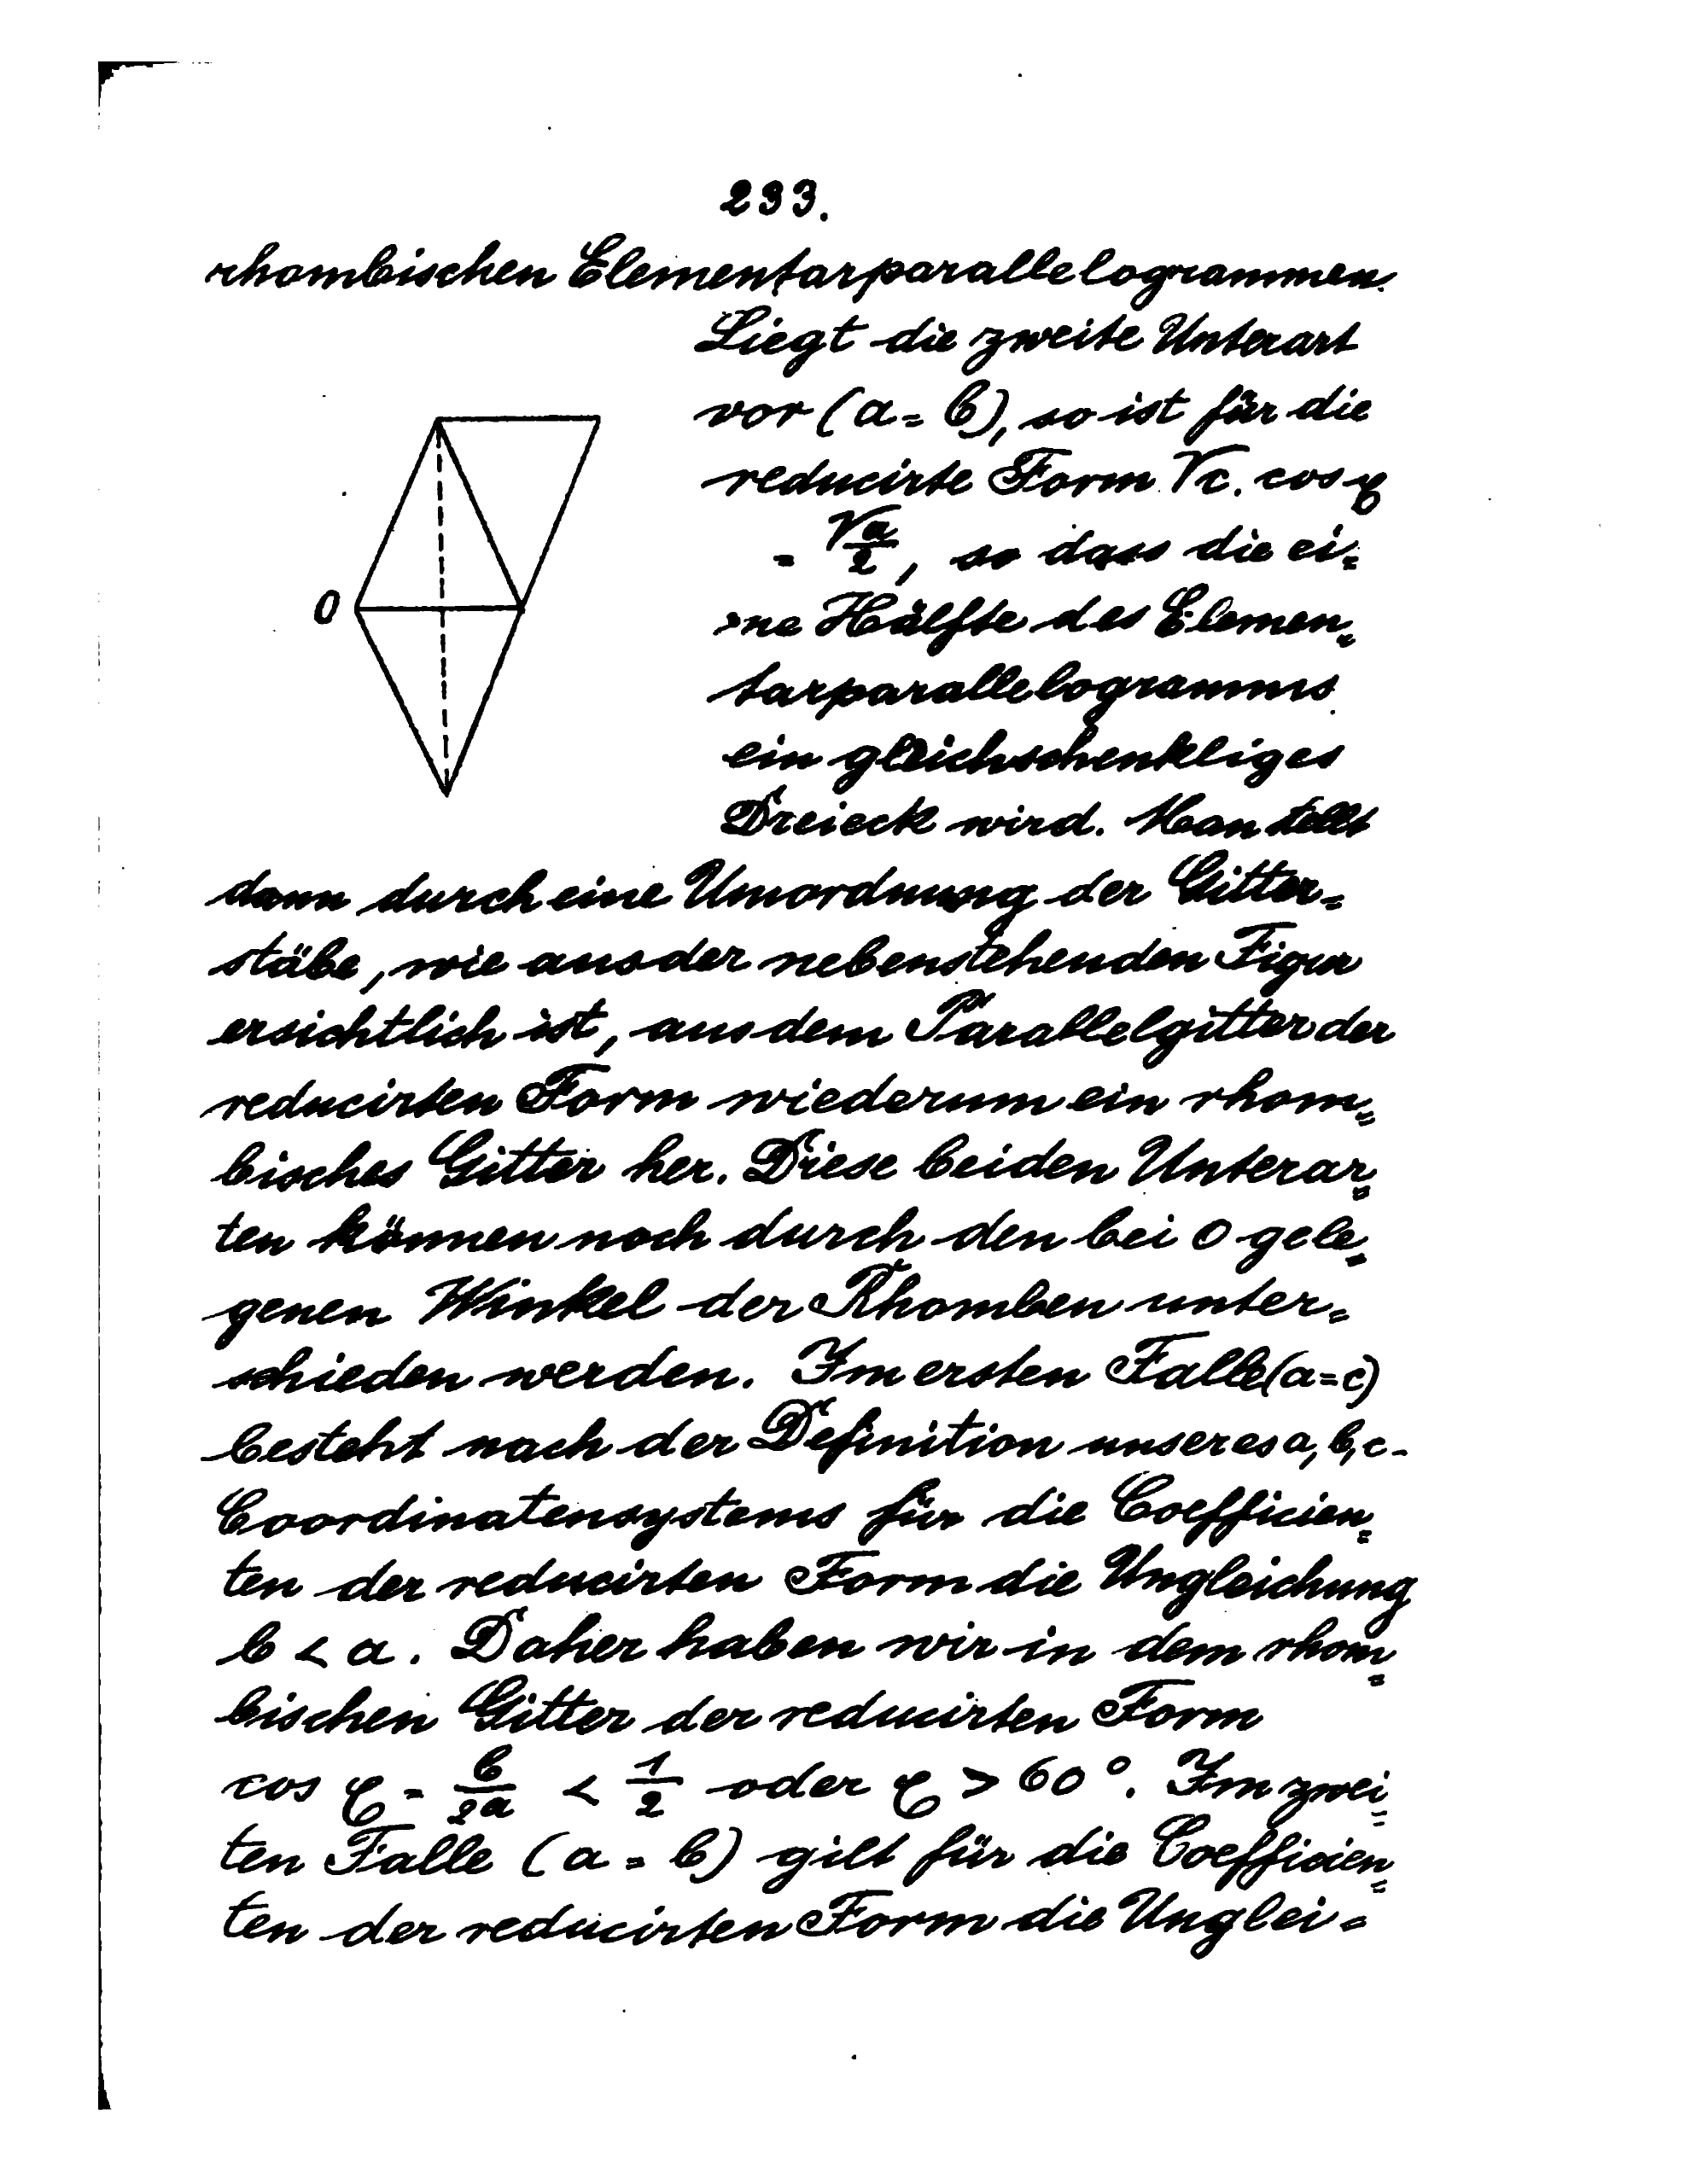 233.
rhombischen Elementarparallelogrammen.
Liegt die zweite Unterart
vor (a = b), so ist für die
reducirte Form √c. cos φ
= √a/2, so dass die ei=
ne Hälfte des Elemen=
tarparallelogramms
ein gleichschenkliges
Dreieck wird. Man stellt
dann durch eine Umordnung der Gitter=
stäbe, wie aus der nebenstehenden Figur
ersichtlich ist, aus dem Parallelgitter der
reducirten Form wiederum ein rhom=
bisches Gitter her. Diese beiden Unterar=
ten können noch durch den bei 0 gele=
genen Winkel der Rhomben unter=
schieden werden. Im ersten Falle (a=c)
besteht nach der Definition unseres a, b, c-
Coordinatensystems für die Coefficien=
ten der reducirten Form die Ungleichung
b < a. Daher haben wir in dem rhom=
bischen Gitter der reducirten Form
cos φ = b/2a < 1/2 oder φ > 60°. Im zwei=
ten Falle (a = b) gilt für die Coefficien=
ten der reducirten Form die Unglei=
0